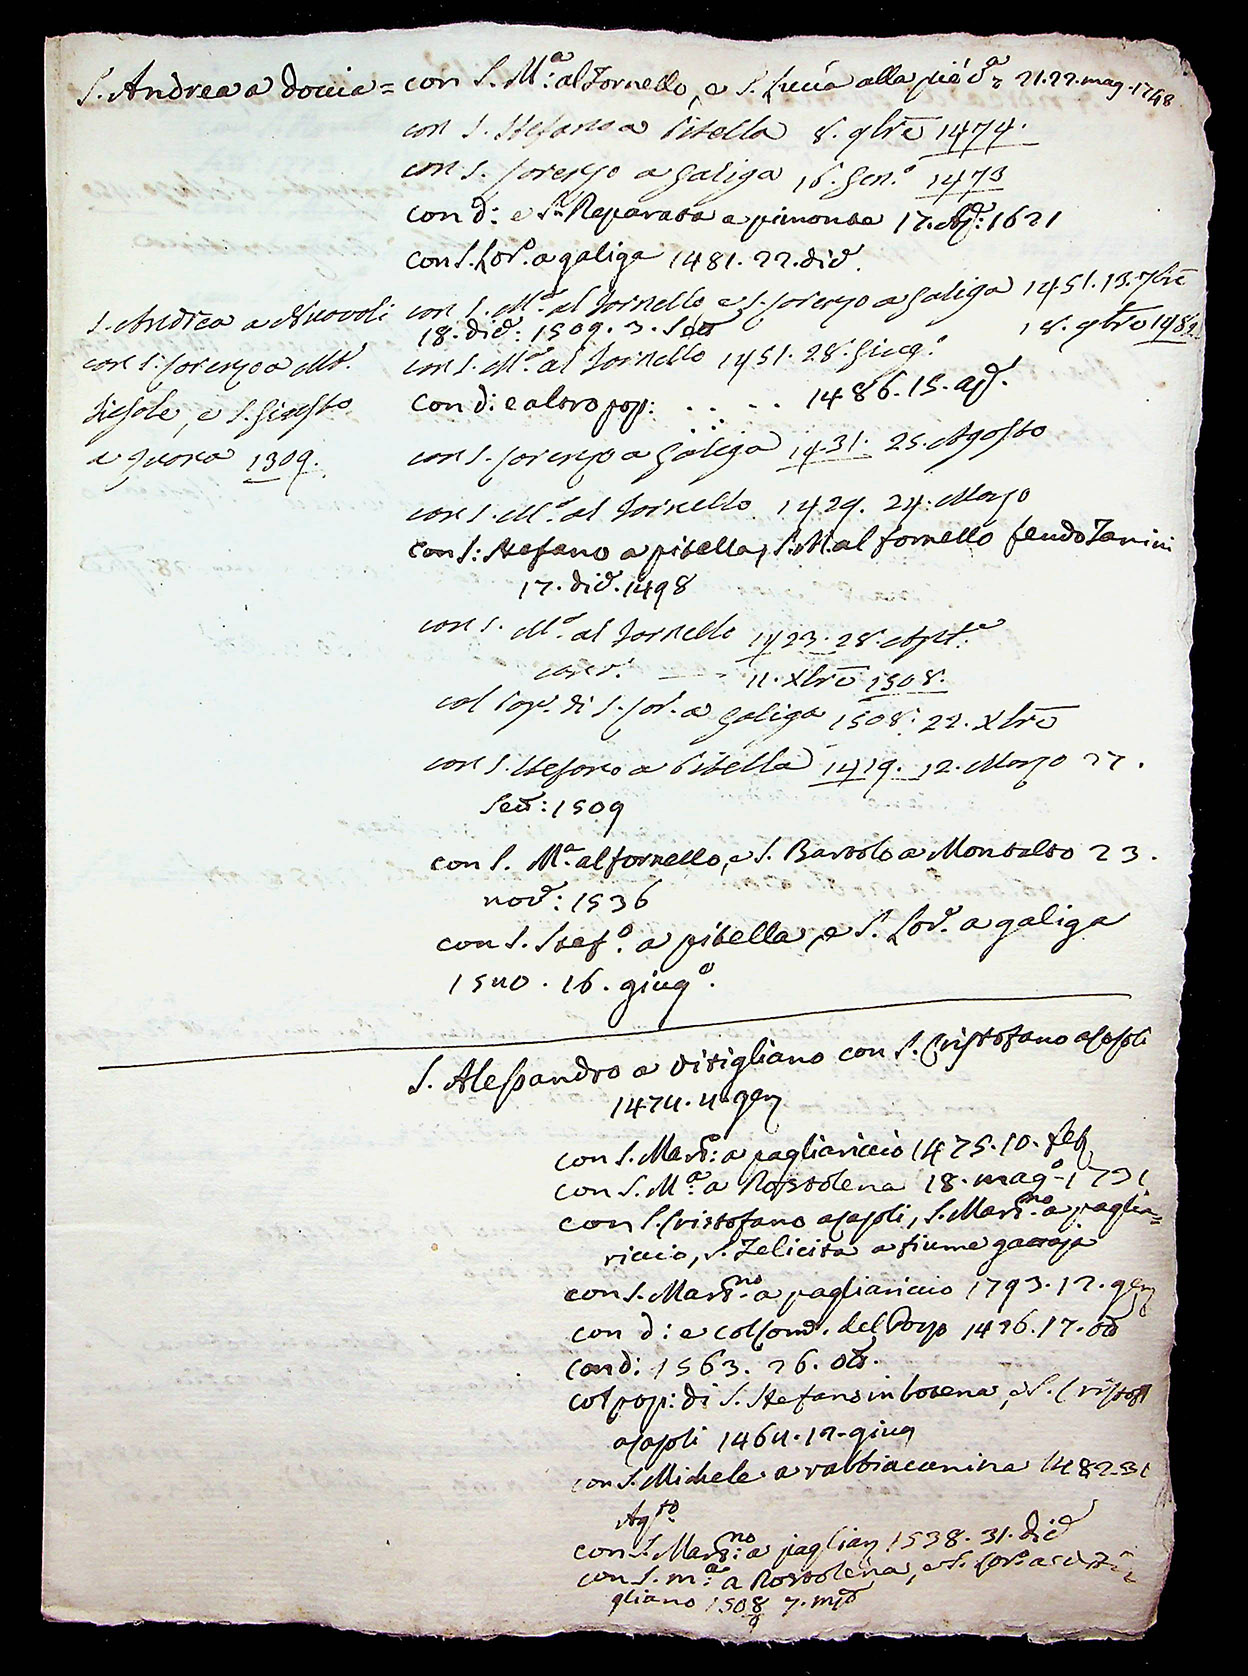 S. Andrea a Doccia = con S. M.ª al Fornello, e S. Lucia alla pieve 21.22. mag. 1748
con S. Stefano a Pitella 8. 9bre 1474.
con S. Lorenzo a Galiga 16. Gen.º 1473
con d: e Sª Reparata a pimonte 17. Ap: 1621
con S. Lor.º a galiga 1481. 22. dic.
S. Andrea a Nuovoli
con S. Lorenzo a Mte.
fiesole, e S. Giusto
a Quona 1309.
con S. M.ª al Fornello e S. Lorenzo a Galiga 1451. 13. 7bre
18. dic: 1509. 3. Set
18. 9bre 1482
con S. M.ª al Fornello 1451. 28. Giug.º
con d: e altro pop: . . . . 1486. 15. ap.
con S. Lorenzo a Galiga 1431. 25. Agosto
con S. M.ª al Fornello 1429. 24. Marzo
con S: Stefano a pitella, S. M. al fornello feudo Zanini
17. dic. 1498
con S. M.ª al Fornello 1423. 28. Aple.
11. Xbre 1508.
col Pop. di S. Lor. a Galiga 1508. 22. Xbre
con S. Stefano a Pitella 1419. 12. Marzo 27.
Set: 1509
con S. M.ª al fornello, e S. Bartolo a Montalto 23.
nov: 1536
con S. Stef.º a pitella, e S. Lor. a galiga
1540. 16. giug.º
S. Alessandro a Vitigliano con S. Cristofano a Casoli
1474. 4. gen
con S. Mart: a pagliariccio 1475. 10. feb
con S. M.ª a Rostolena 18. mag.º 1791
con S. Cristofano a Casoli, S. Mart.no a paglia=
riccio, S. Felicita a fiume
con S. Mart.no a pagliariccio 1793. 12. gen
con d: e col del Pozo 1496. 17. ot
con d: 1563. 26. ott.
col pop: di S. Stefano in botena, e S. Cristof
a Casoli 1464. 12. giug
con S. Michele a rabbiacanina 1482. 31
Ag.to
con S. Mart.no a pagliar 1538. 31. dic
con S. m.ª a Rostolena, e S. Lor.º a
gliano 1508 7.
9